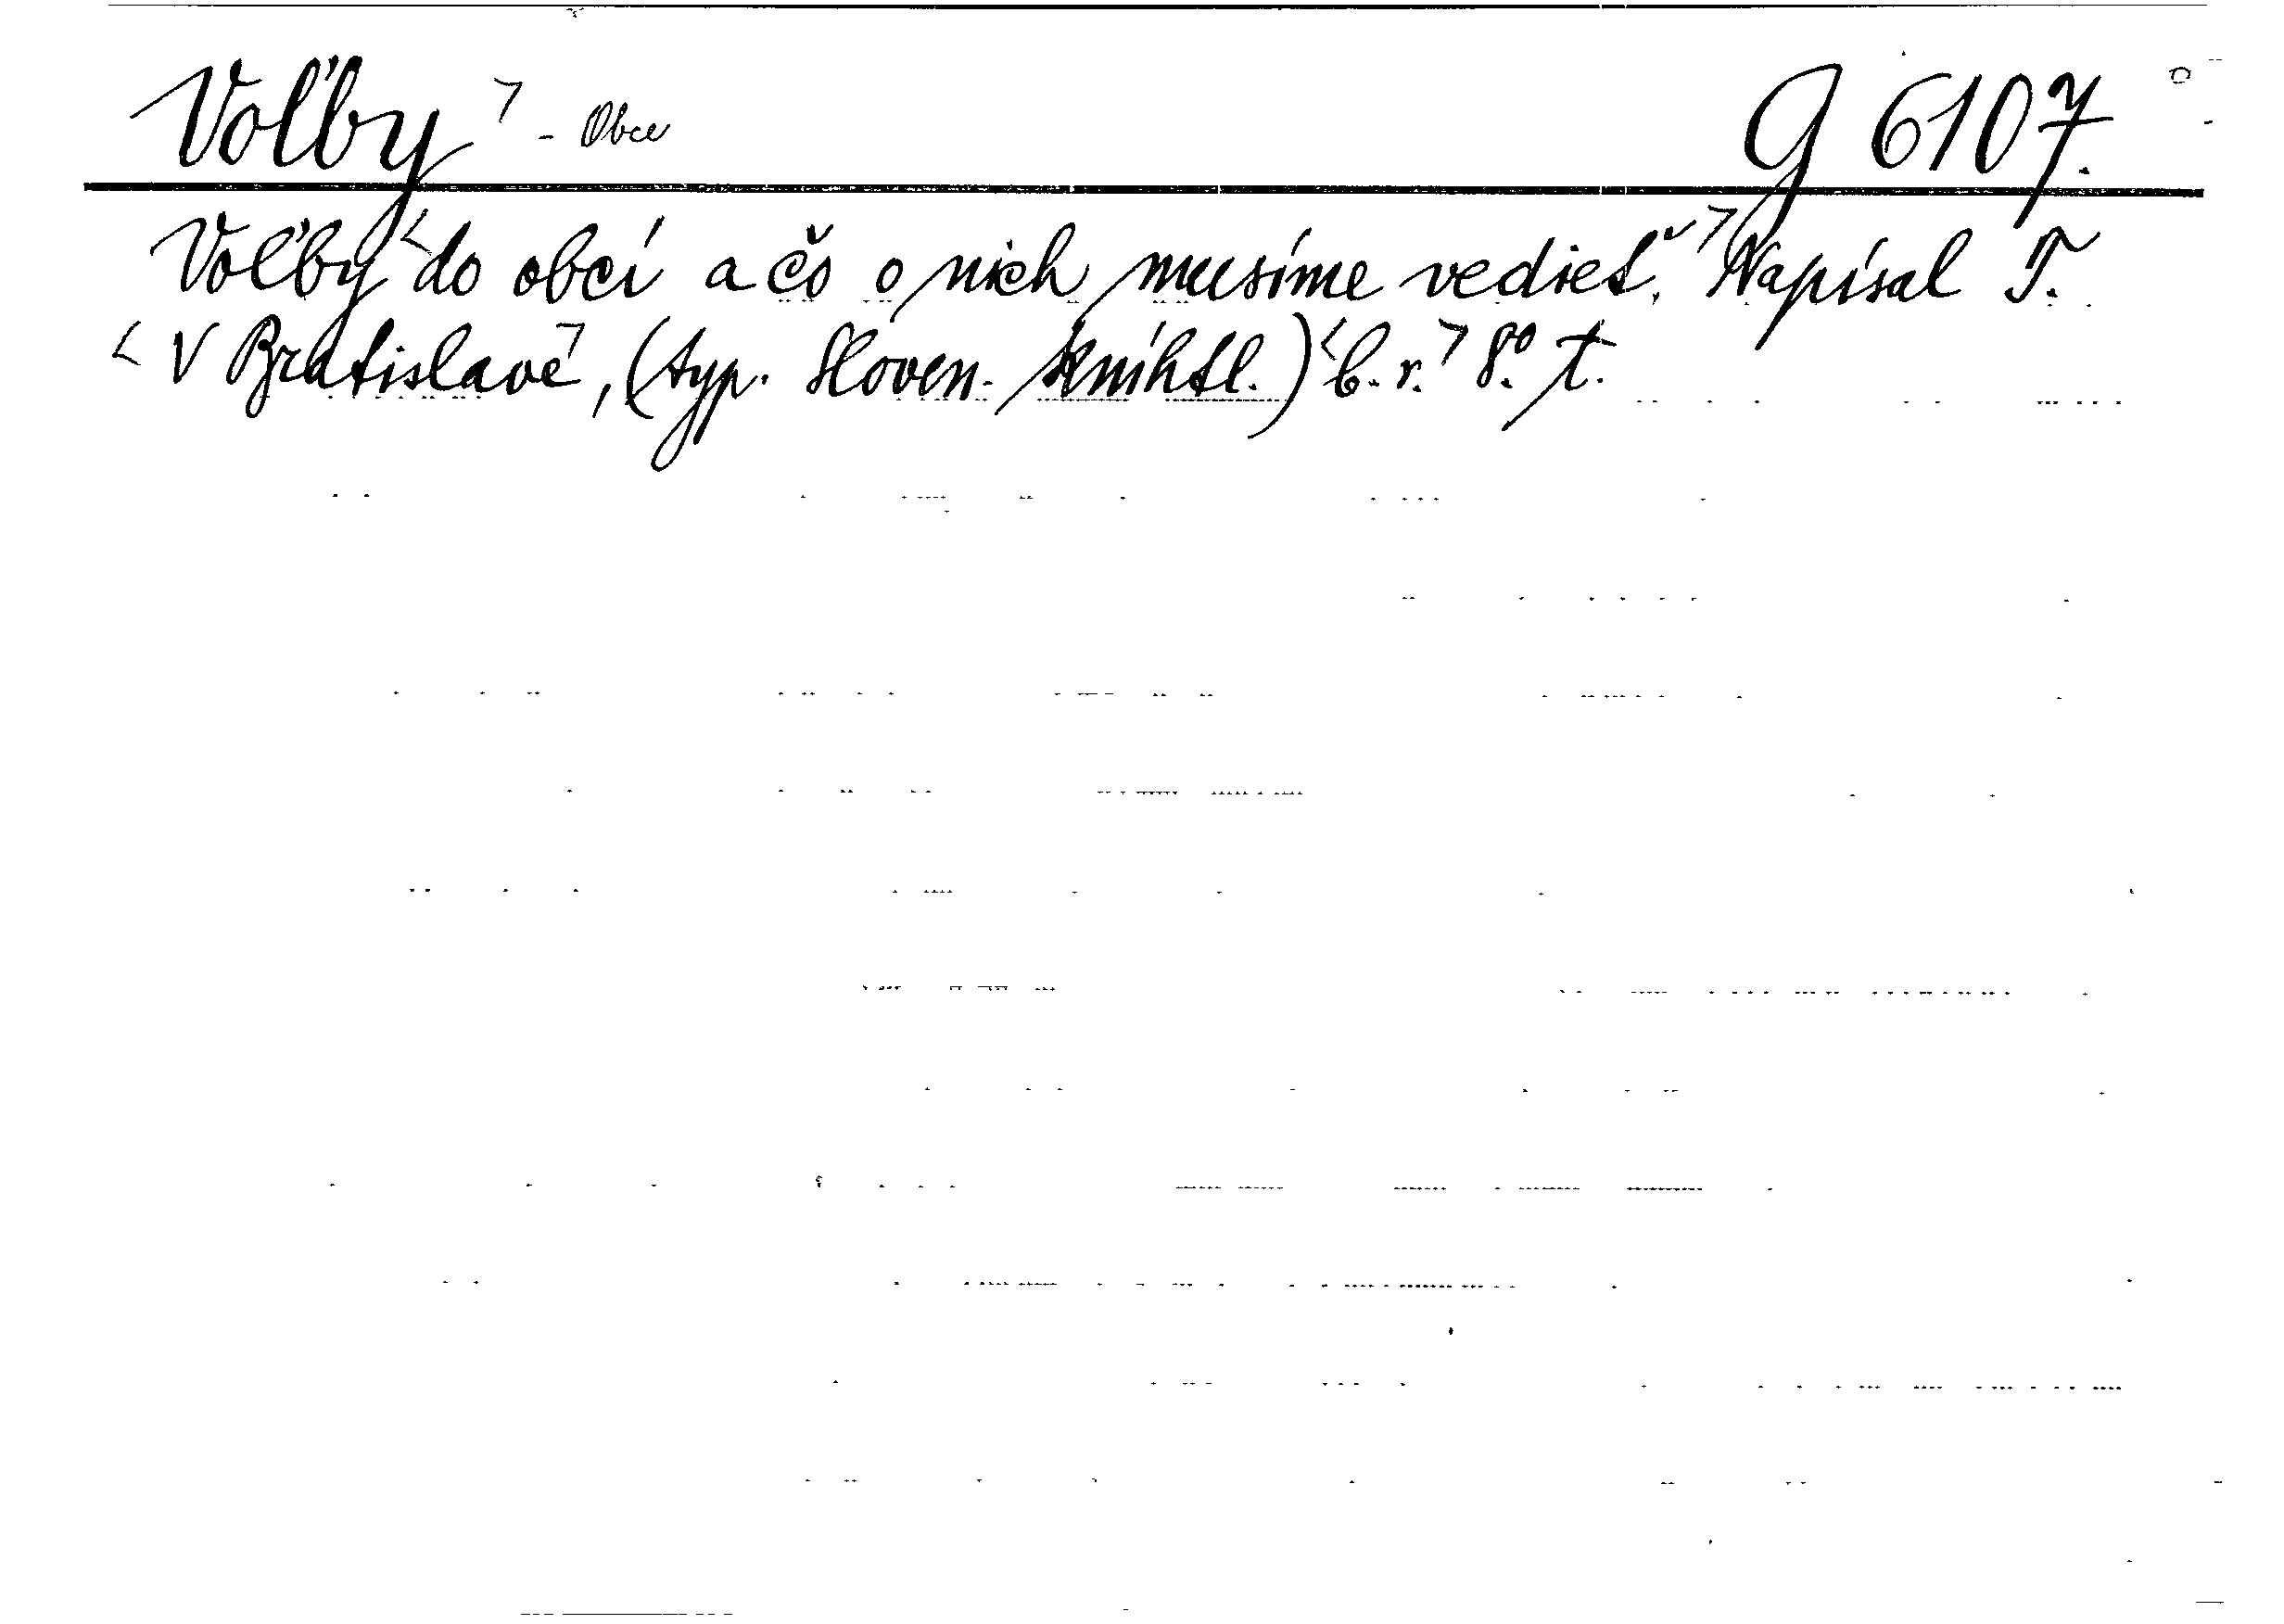 Voľby ˃ - Obce G 6107.
Voľby ˂do obcí a čo o nich musíme vedieť.˃ Napísal T.
˂V Bratislavě˃, (typ. Sloven. Kníhtl.) ˂b. r.˃ 8°. t.